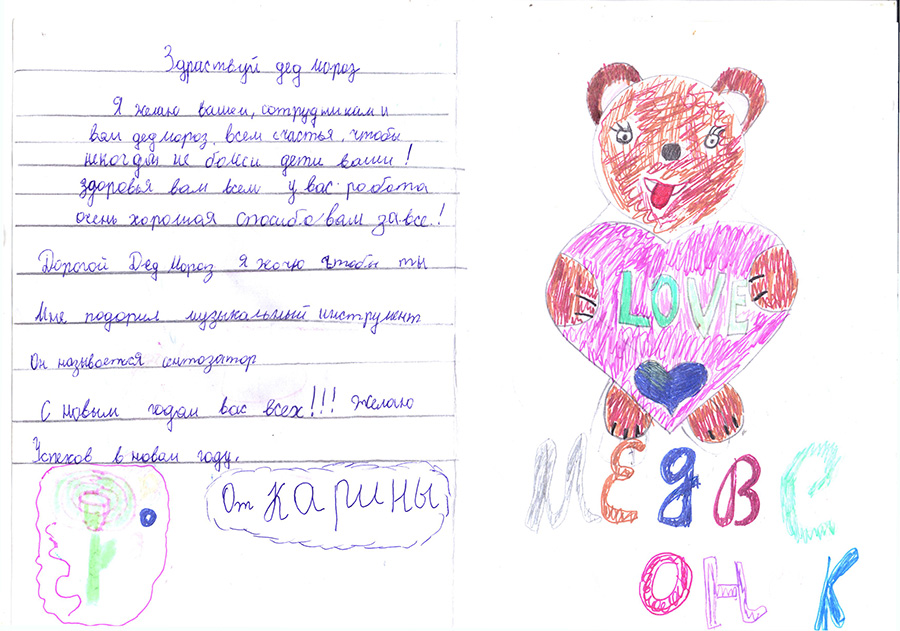 Здраствуй дед мороз
Я желаю вашем, сотрудникам и
вам дед мороз, всем счастья, чтобы
некогда не болели дети ваши!
здоровья вам всем у вас работа
очень хорошая спосибо вам за все!
Дорогой Дед Мороз Я хочю чтобы ты
Мне подорил музыкальный инструмент
Он называется синтозатор
С новым годом вас всех!!! Желаю
Успехов в новом году.
От Карины
LOVE
МЕДВС
ОНК